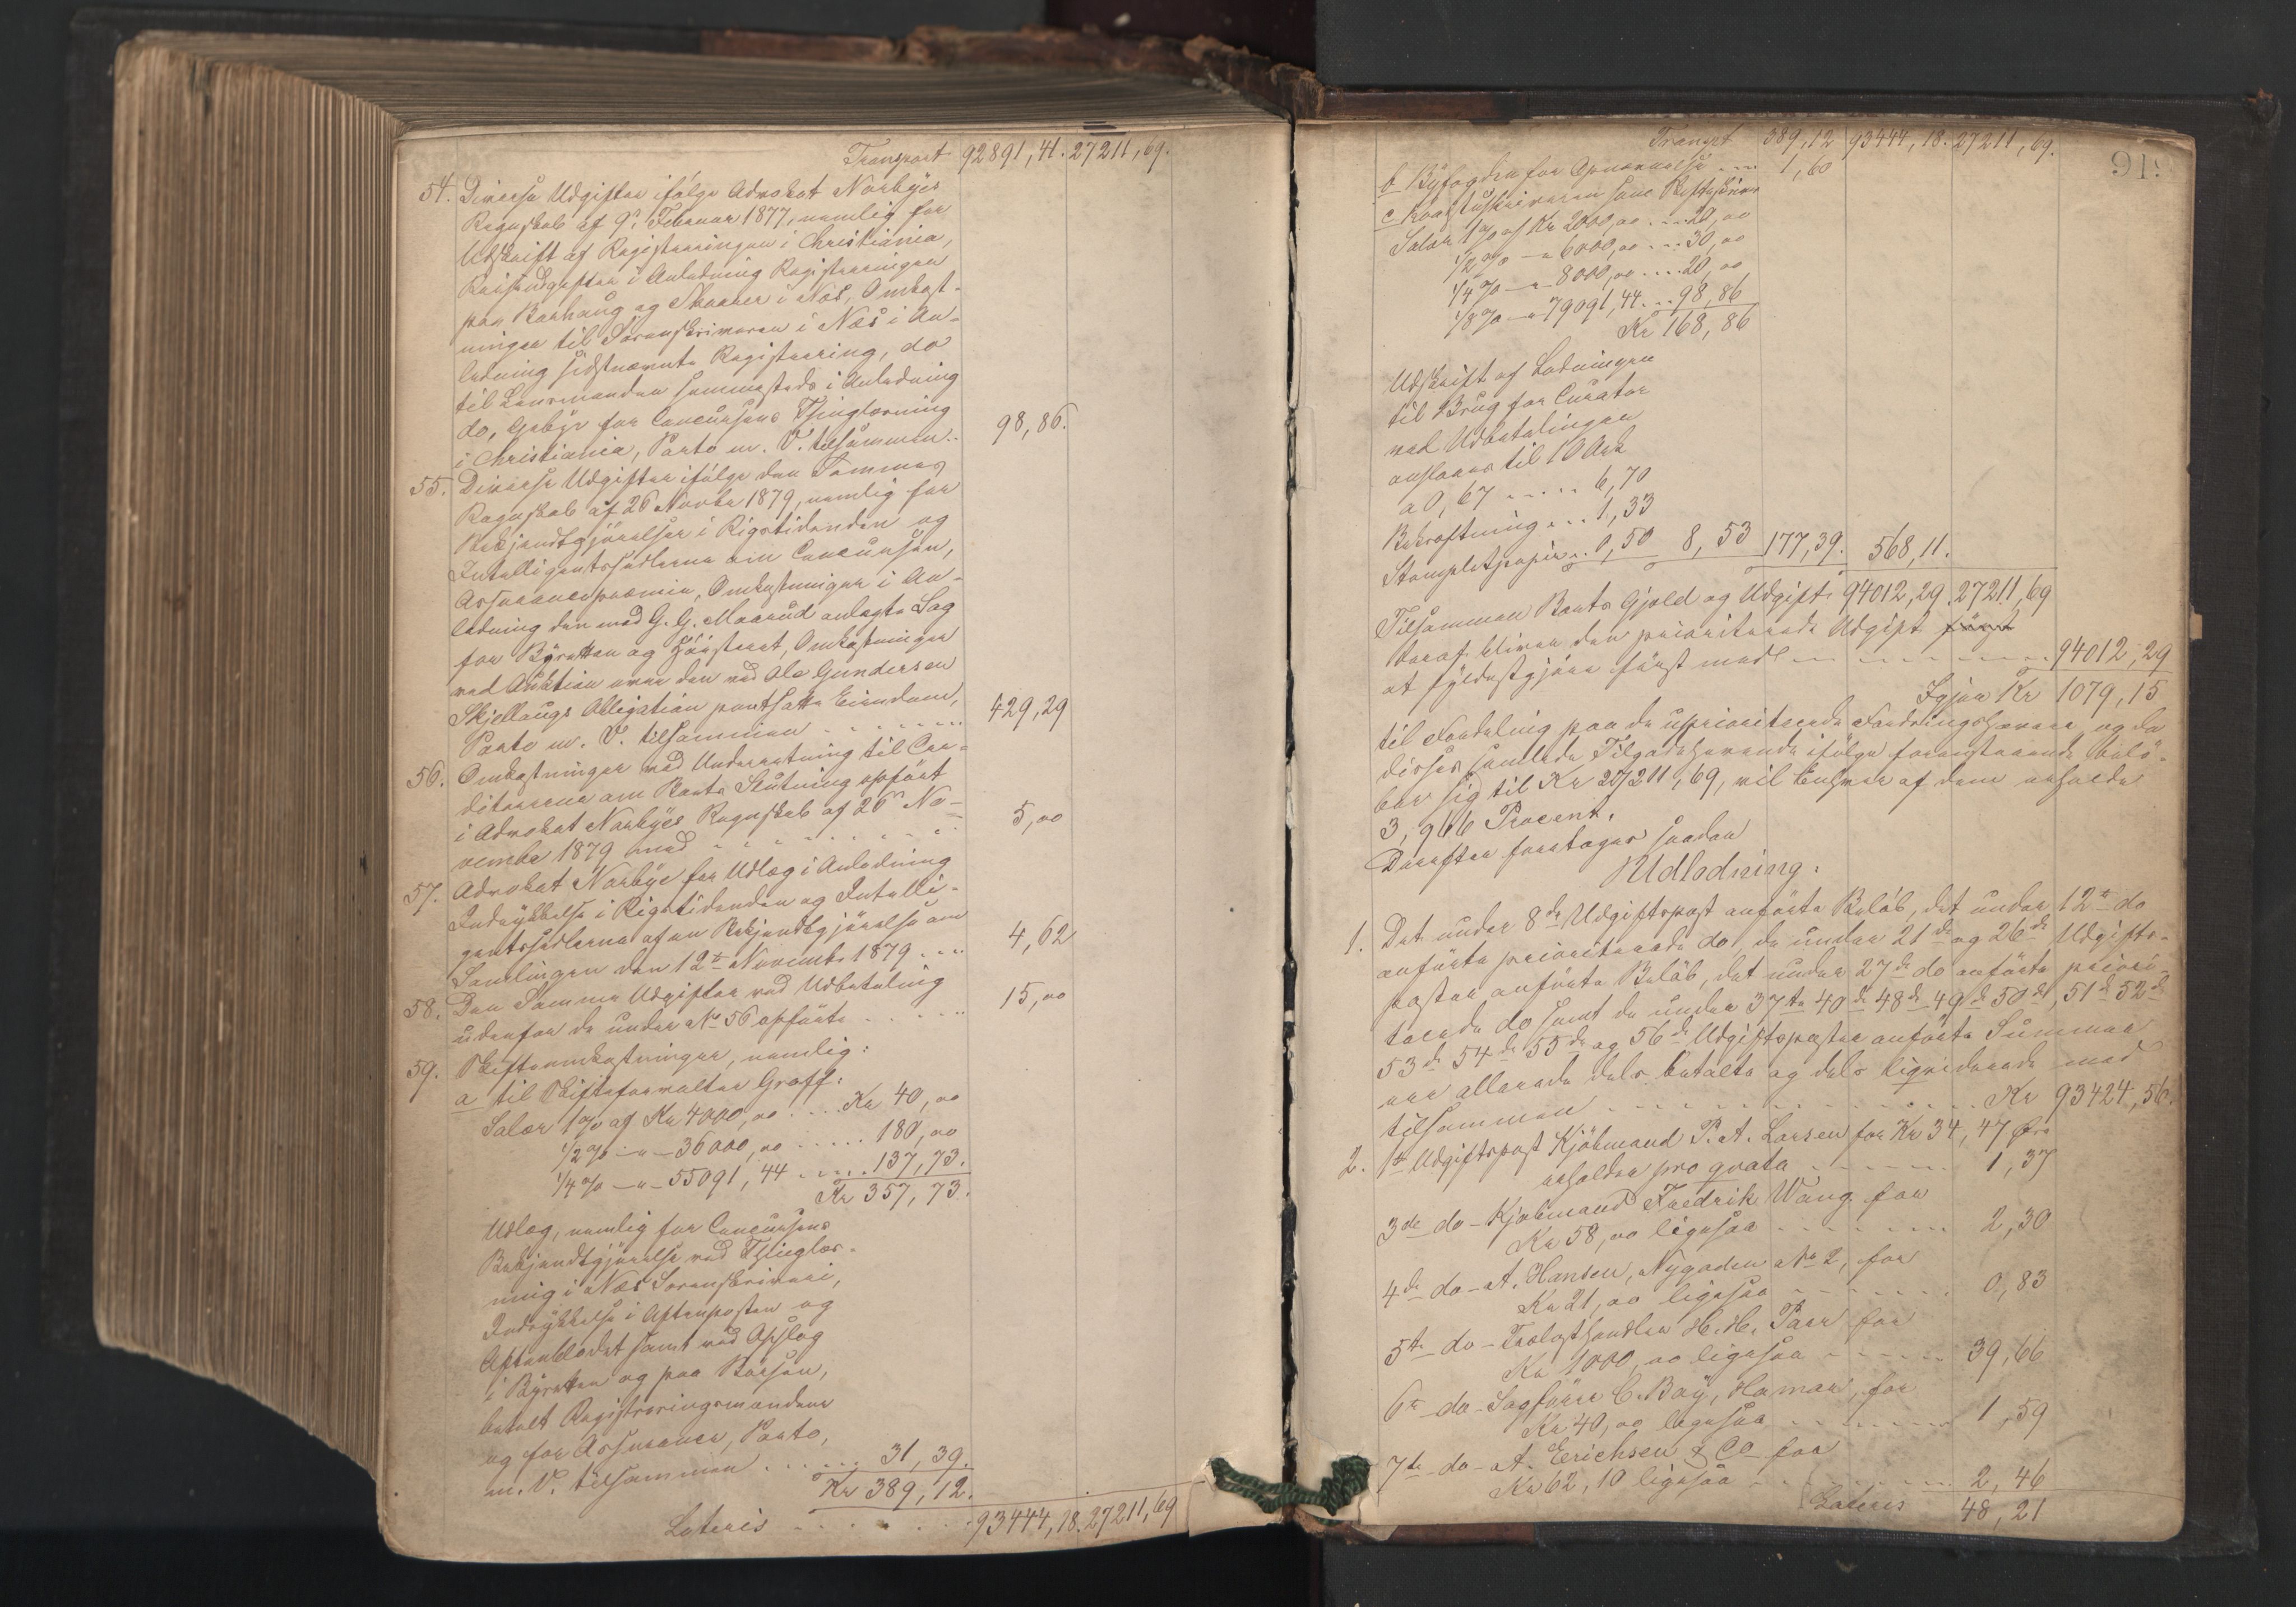 Transport 92891,41. 27211,69.
54. Diverse Udgifter ifølge Advokat Norbyes
Regnskab af 9de Februar 1877, nemlig for
Udskrift af Registreringen i Christiania,
Reiseudgifter i Anledning Registreringen
paa Borhaug og Skaarer i Næs, Omkost-
ninger til Sorenskriveren i Næs i An-
ledning sidstnævnte Registrering, do
til Lensmanden sammesteds i Anledning
do, Gebyr for Concursens Thinglæsning
i Christiania, Porto m. V. tilsammen .. 98,86.
55. Diverse Udgifter ifølge den Sammes
Regnskab af 26 Novbr 1879, nemlig for
Bekjendtgjørelser i Rigstidenden og
Intelligentssedlerne om Concursen,
Assurancepræmie, Omkostninger i An-
ledning den mod G. G. Maarud anlagte Sag
for Byretten og Høiesteret, Omkostninger
ved Auktion over den ved Ole Gundersen
Skjellaugs Obligation pantsatte Eiendom,
Porto m. V. tilsammen . . . . . . 429,29
56. Omkostninger ved Underretning til Cre-
ditorerne om Boets Slutning opført
i Advokat Norbyes Regnskab af 26 No-
vember 1879 med . . . . . . . . 5,00
57. Advokat Norbye for Udlæg i Anledning
Indrykkelse i Rigstidenden og Intelli-
gentssedlerne af en Bekjendtgjørelse om
Samlingen den 12te November 1879 .... 4,62
58. Den Samme Udgifter ved Udbetaling
udenfor de under No 56 opførte . . . . . . 15,00
59. Skifteomkostninger, nemlig:
a til Skifteforvalter Graff:
Salær 1% af Kr 4000,00 .... Kr 40,00
1/2% —"— 36000,00 ...... 180,00
1/4% —"— 55091,44 ..... 137,73.
Kr 357,73.
Udlæg, nemlig for Concursens
Bekjendtgjørelse ved Thinglæs-
ning i Næs Sorenskriveri,
Indrykkelse i Aftenposten og
Aftenbladet samt ved Opslag
i Byretten og paa Børsen,
betalt Registreringsmændene
og for Assurance, Porto,
m. V. tilsammen . . . . . . 31,39.
Kr 389,12.
Lateris . . . . . . 93444,18. 27211,69
91.
Transpt 389,12 93444,18. 27211,69.
b Byfogden for Opnævnelse .... 1,60
c som Skifteskriver
Salær 1% af Kr 2000,00 .... 20,00
1/2% —"— 6000,00 .... 30,00
1/4% —"— 8000,00 .... 20,00
1/8% —"— 79091,44 ... 98,86
Kr 168,86
Udskrift af Lodningen
til Brug for Curator
ved Udbetalingen
anslaaes til 10 Ark
a 0,67 ..... 6,70
Bekræftning ... 1,33
Stempletpapir .. 0,50 8,53 177,39. 568,11.
Tilsammen Boets Gjæld og Udgift: 94012,29. 27211,69
Heraf bliver den prioriterede Udgift først
at fyldestgjøre først med . . . . . . . . 94012,29
Igjen Kr 1079,15
til Fordeling paa de uprioriterede Fordringshavere, og da
disses samlede Tilgodehavende ifølge foranstaaende belø-
ber sig til Kr 27211,69, vil Enhver af dem erholde
3,966 Procent.
Derefter foretages saadan
Udlodning:
1. Det under 8de Udgiftspost anførte Beløb, det under 12te do
anførte prioriterede do, de under 21de og 26de Udgifts-
poster anførte Beløb, det under 27de do anførte priori-
terede do samt de under 37te 40de 48de 49de 50de, 51de 52de
53de 54de 55de og 56de Udgiftsposter anførte Summer
ere allerede dels betalte og dels liqviderede med
tilsammen . . . . . . . . . . . . Kr 93424,56.
2. 1ste Udgiftspost Kjøbmand P. A. Larsen for Kr 34,47 Øre
erholder pro qvata . . . . . . . 1,37
3de do – Kjøbmand Fredrik Wang for
Kr 58,00 ligesaa . . . . . . . 2,30
4de do – A. Hansen, Nygaden No 2, for
Kr 21,00 ligesaa . . . . . . . 0,83
5te do – Trælasthandler H. H. Paar for
Kr 1000,00 ligesaa . . . . . . 39,66
6te do – Sagfører C. Bay, Hamar, for
Kr 40,00 ligesaa . . . . . . . 1,59
7de do – A. Erichsen & Co for
Kr 62,10 ligesaa . . . . . . . 2,46
Lateris 48,21